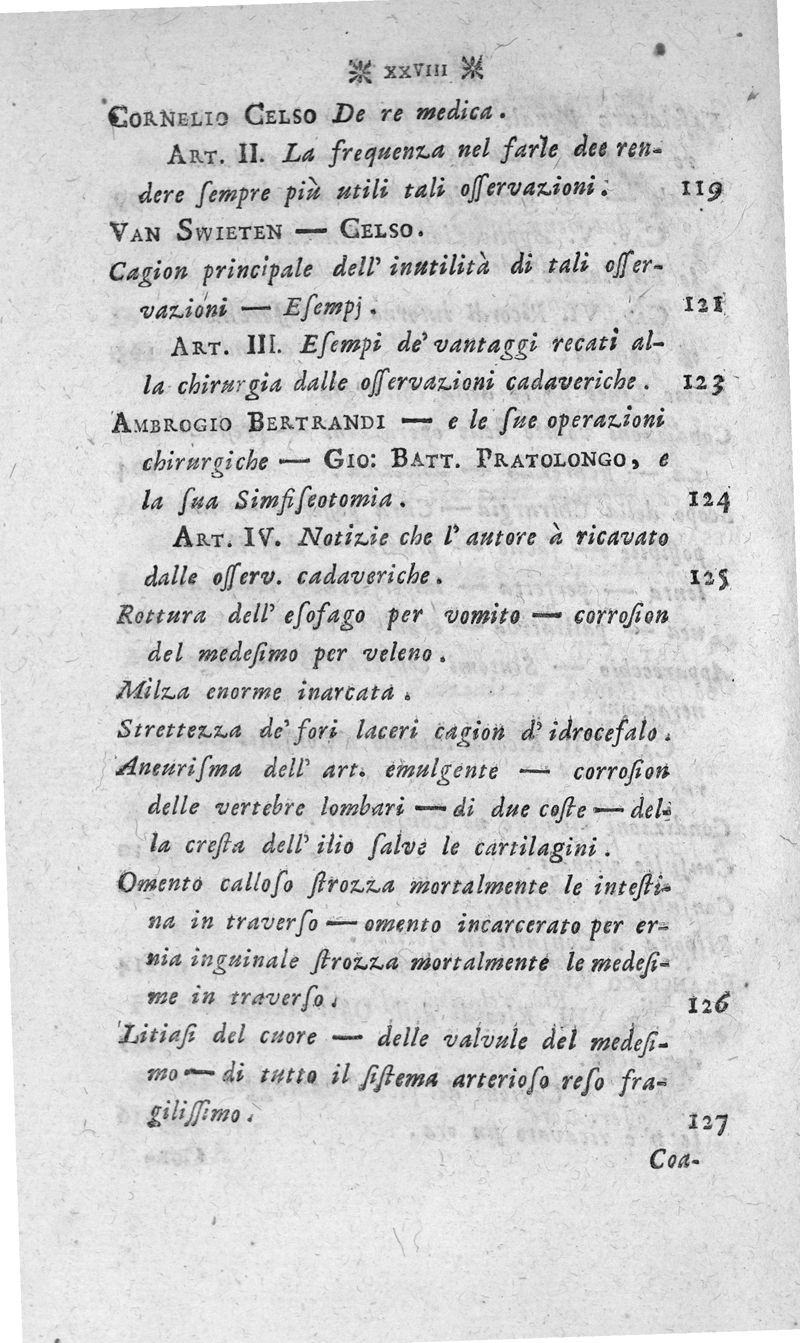 xxviii
Cornelio Celso De re medica.
Art. II. La frequenza nel farle dee ren-
dere ſempre più utili tali oſſervazioni. 119
Van Swieten — Celso.
Cagion principale dell' inutilità di tali oſſer-
vazioni — Eſempj. 121
Art. III. Eſempi de' vantaggi recati al-
la chirurgia dalle oſſervazioni cadaveriche. 123
Ambrogio Bertrandi — e le ſue operazioni
chirurgiche — Gio: Batt. Pratolongo, e
la ſua Simfiſeotomia. 124
Art. IV. Notizie che l' autore à ricavato
dalle oſſerv. cadaveriche. 125
Rottura dell' eſofago per vomito — corroſion
del medeſimo per veleno.
Milza enorme inarcata.
Strettezza de' fori laceri cagion d' idrocefalo.
Aneuriſma dell' art. emulgente — corroſion
delle vertebre lombari — di due coſte — del-
la creſta dell' ilio ſalve le cartilagini.
Omento calloſo ſtrozza mortalmente le inteſti-
na in traverſo — omento incarcerato per er-
nia inguinale ſtrozza mortalmente le medeſi-
me in traverſo. 126
Litiaſi del cuore — delle valvule del medeſi-
mo — di tutto il ſiſtema arterioſo reſo fra-
giliſſimo. 127
Coa-